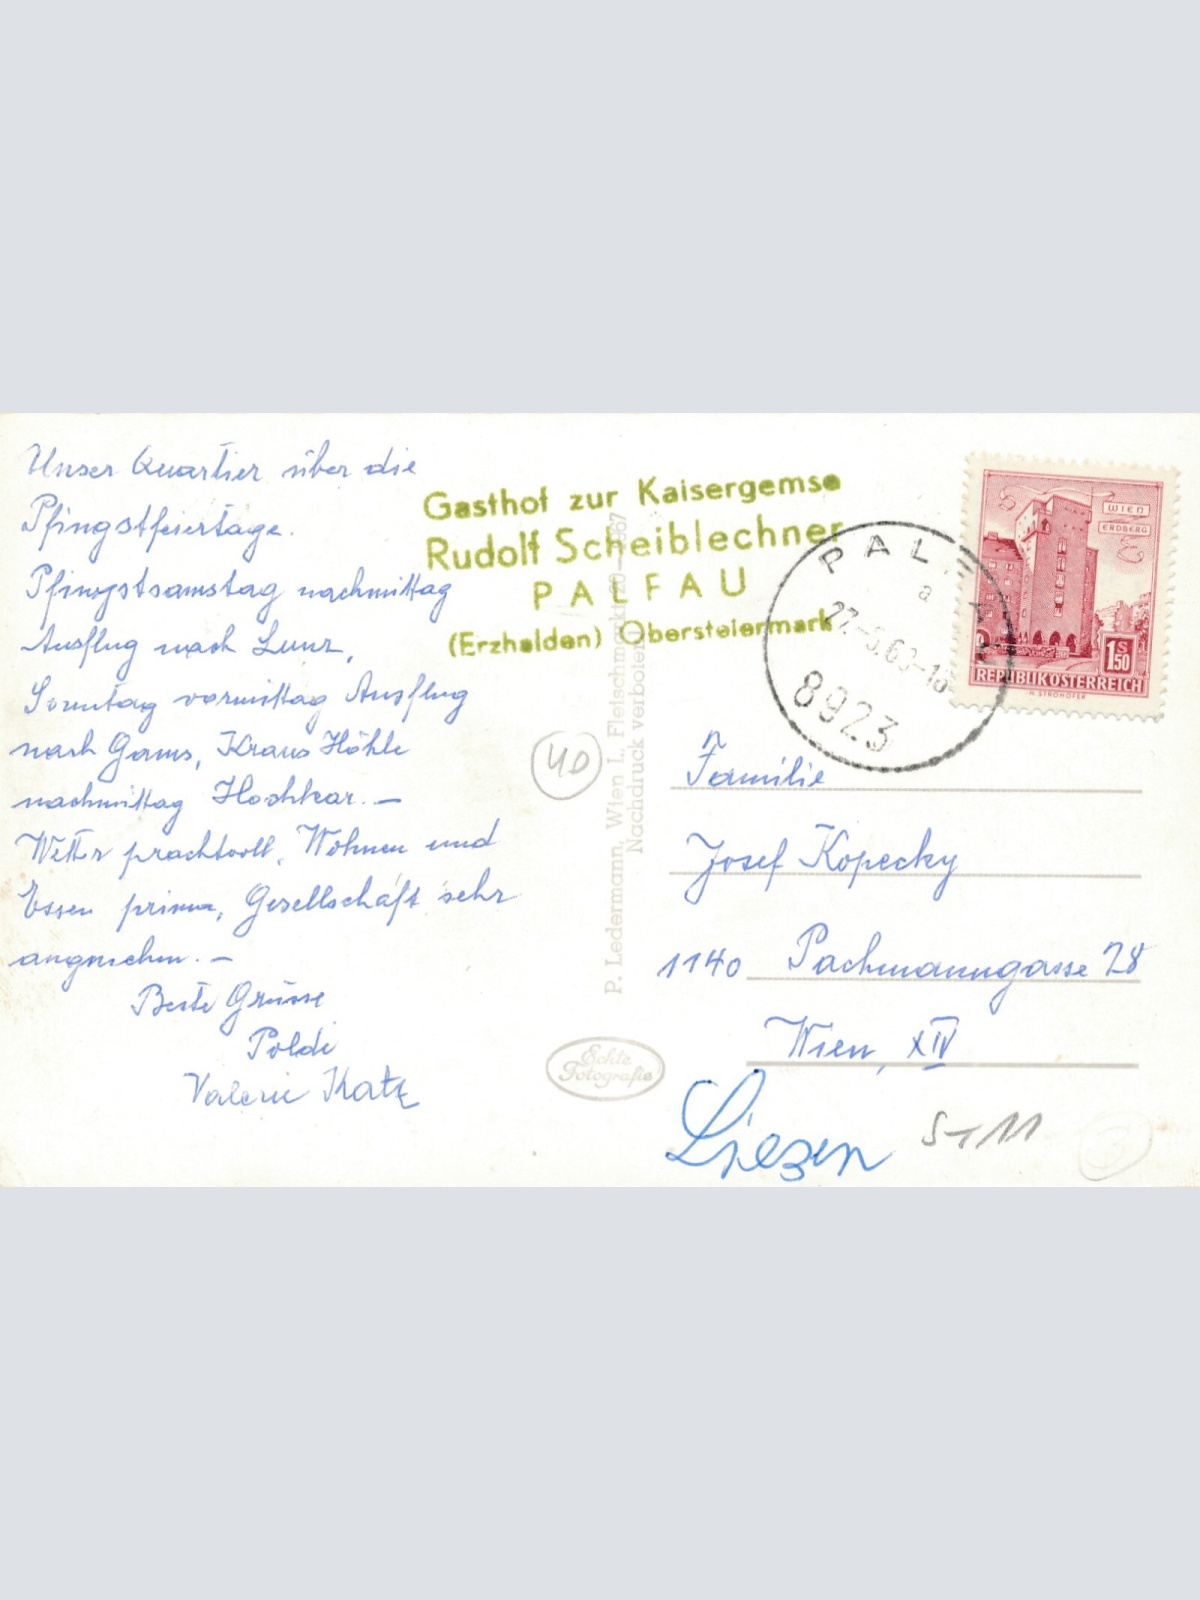 Unser Quartier über die
Pfingstfeiertage.
Pfingstsamstag nachmittag
Ausflug nach Lunz,
Sonntag vormittag Ausflug
nach Gams, Kraus Höhle
nachmittag Hochkar. –
Wetter prachtvoll, Wohnen und
Essen prima, Gesellschaft sehr
angenehm. –
Beste Grüsse
Poldi
Valerie Katz
Gasthof zur Kaisergemse
Rudolf Scheiblechner
PALFAU
(Erzhalden) Obersteiermark
P. Ledermann, Wien I., Fleischmarkt 20
Nachdruck verboten
40
Echte
Fotografie
PALFAU
a
8923
WIEN
ERDBERG
1S50
REPUBLIK ÖSTERREICH
H. STROHOFER
Familie
Josef Kopecky
1140 Pachmanngasse 28
Wien, XIV
Liezen
ST 11